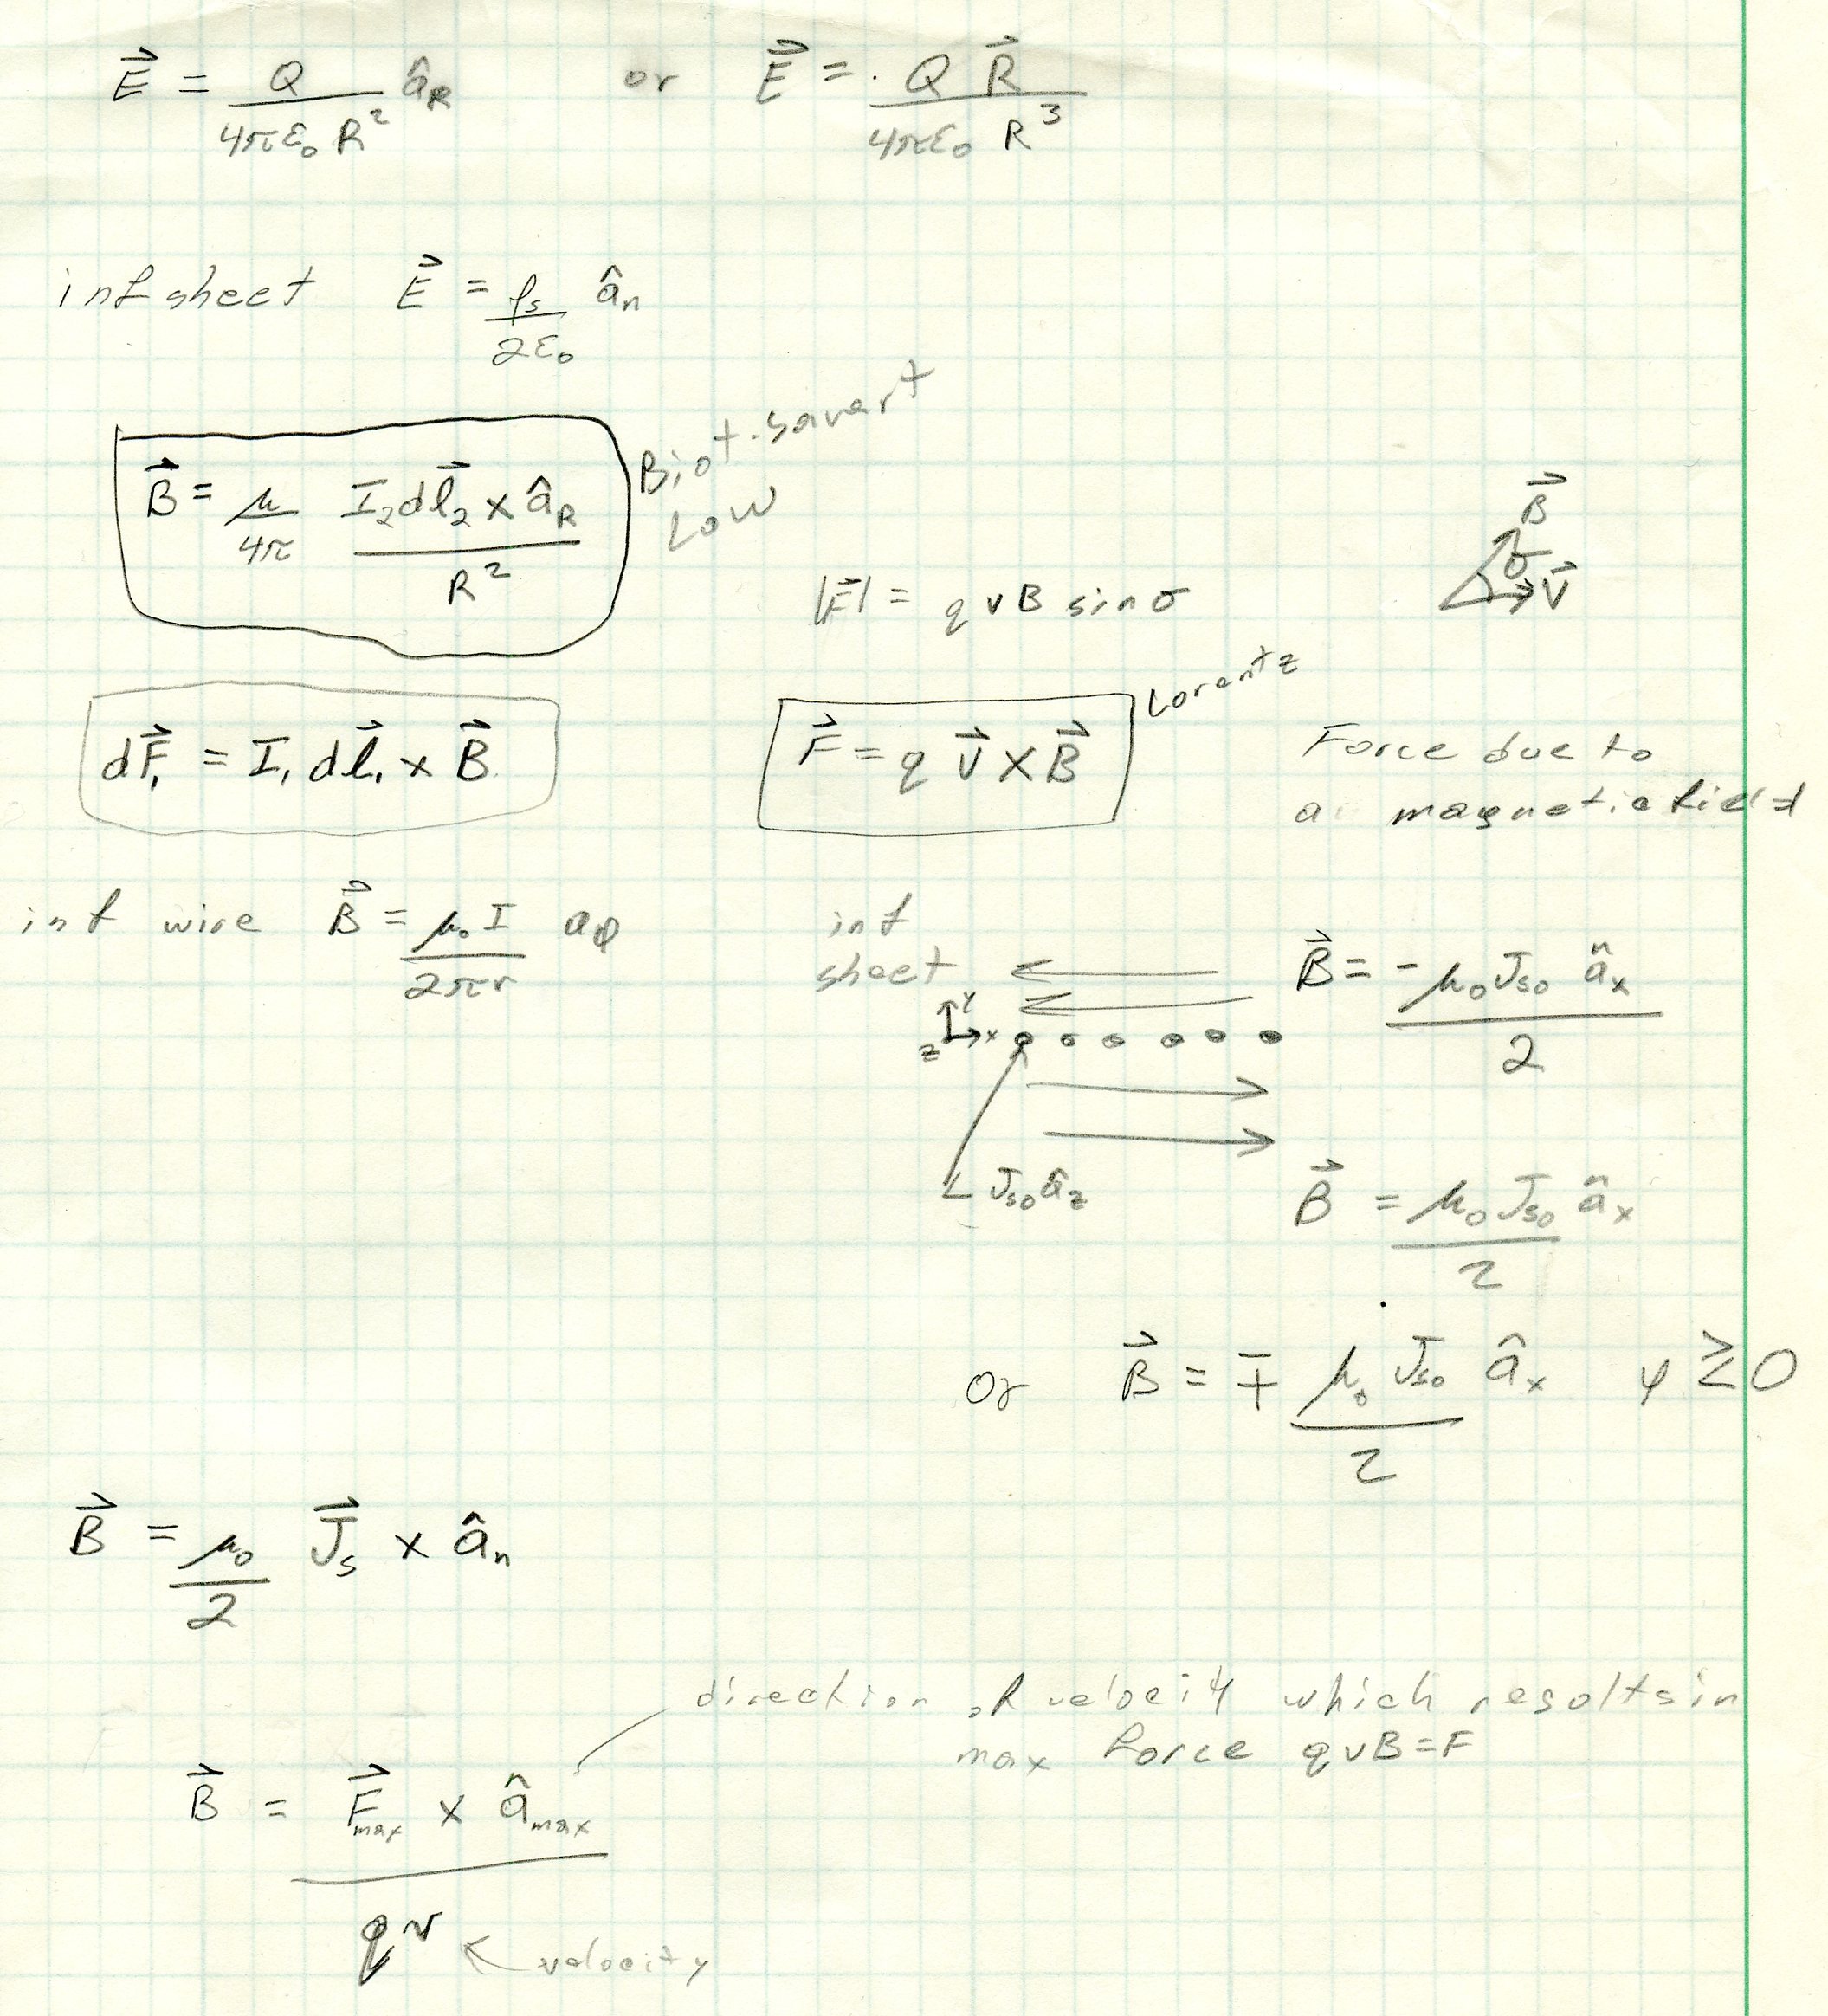 E⃗ = Q / 4πε₀R² â_R or E⃗ = Q R⃗ / 4πε₀ R³
inf sheet E⃗ = ρ_s / 2ε₀ â_n
B⃗ = μ / 4π I₂dl⃗₂ × â_R / R²
Biot-Savart
Law
|F⃗| = q v B sin σ
B⃗
σ
V⃗
dF⃗₁ = I₁ dl⃗₁ × B⃗
F⃗ = q V⃗ × B⃗
Lorentz
Force due to
a magnetic field
inf wire B⃗ = μ₀ I / 2πr a_φ
inf
sheet
B⃗ = -μ₀ J_so â_x / 2
Y
Z X
J_so â_z
B⃗ = μ₀ J_so â_x / 2
or B⃗ = ∓ μ₀ J_so / 2 â_x y ≷ 0
B⃗ = μ₀ / 2 J⃗_s × â_n
direction of velocity which results in
max force qvB=F
B⃗ = F⃗_max × â_max / qv
velocity